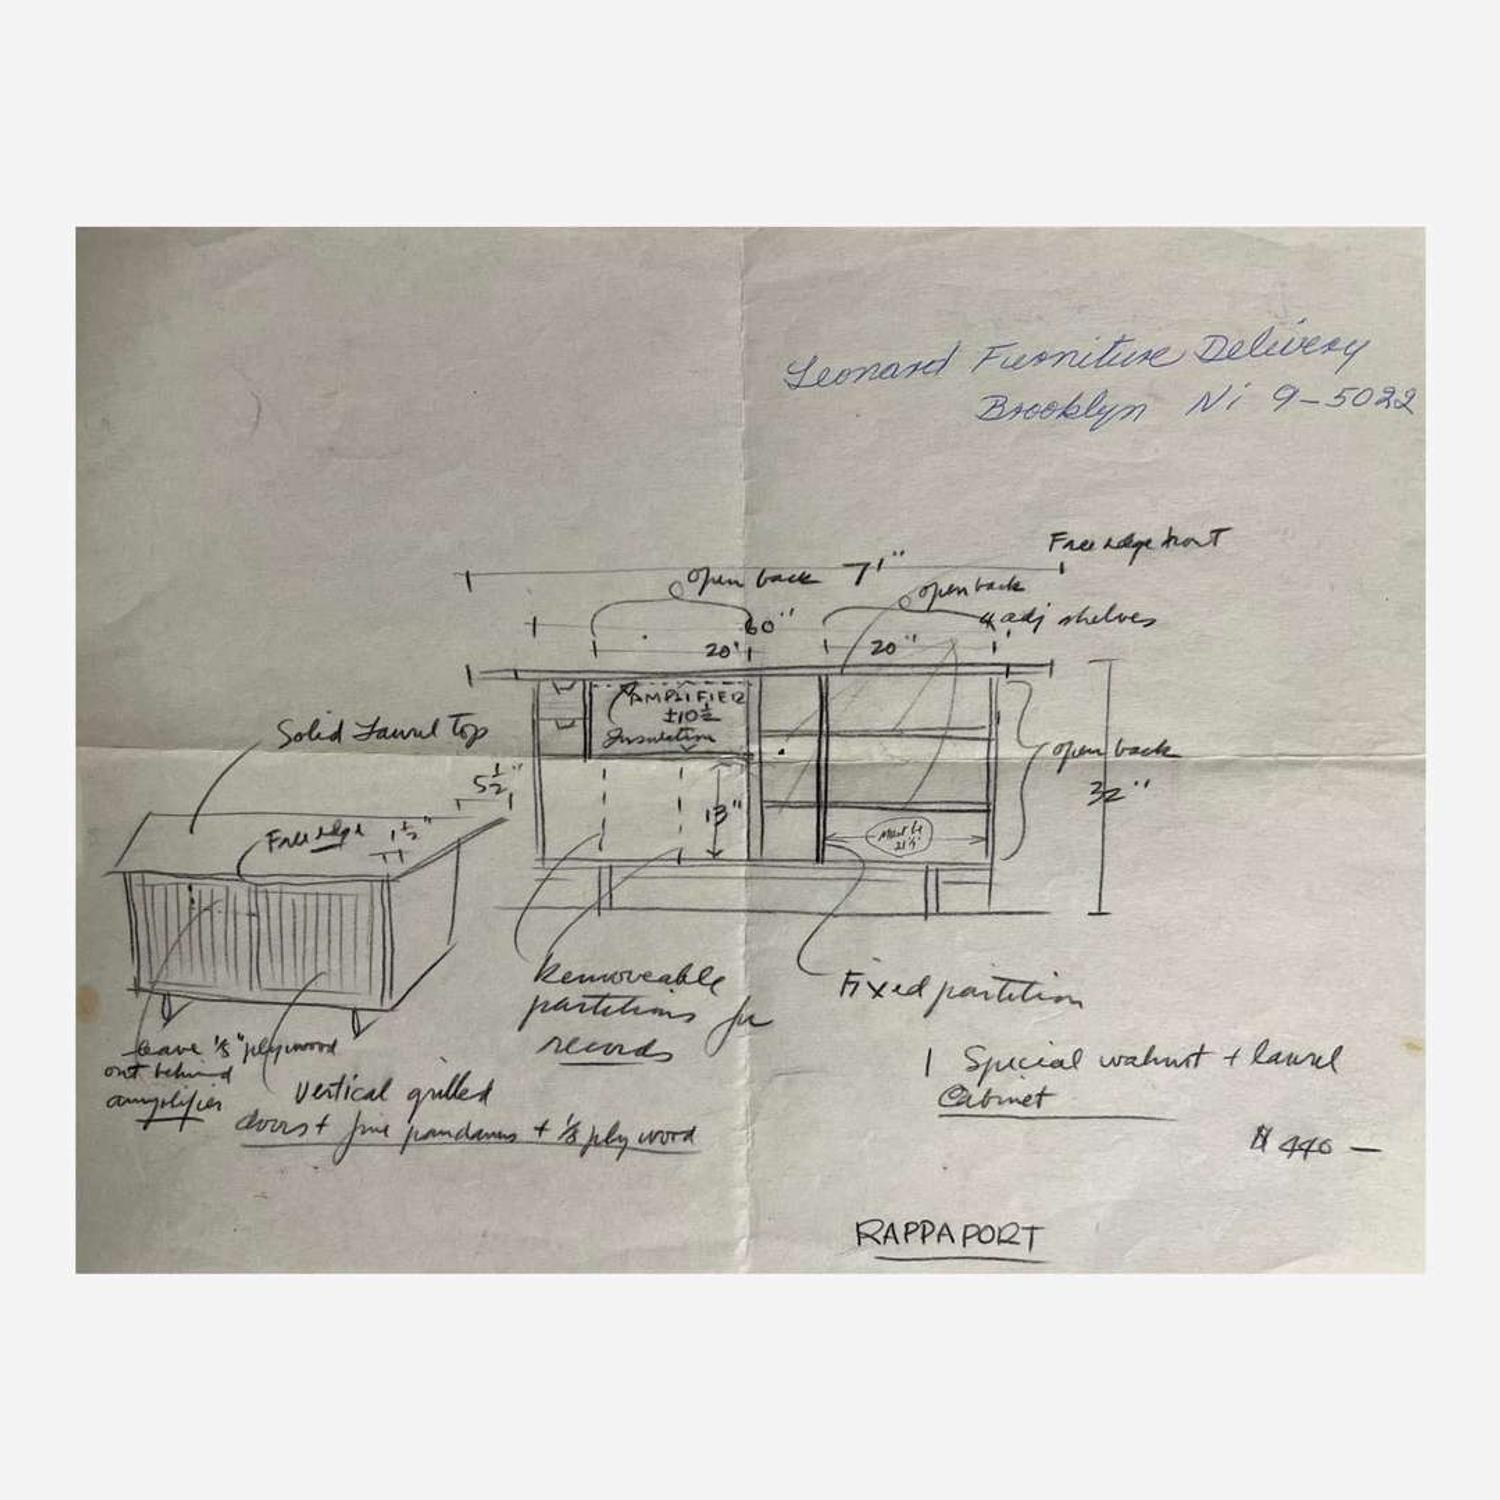 Leonard Furniture Delivery
Brooklyn Ni 9-5022
Free edge front
71"
open back
open back
4 adj shelves
60"
20"
20"
AMPLIFIER
±10½
Insulation
Solid Laurel Top
5½"
open back
32"
13"
Free edge
1½"
must be
Removeable
partitions for
records
Fixed partition
Leave ⅛" plywood
out behind
amplifier
vertical grilled
doors + fine pandanus + ⅛ plywood
1 Special walnut + laurel
Cabinet
$ 440 —
RAPPAPORT